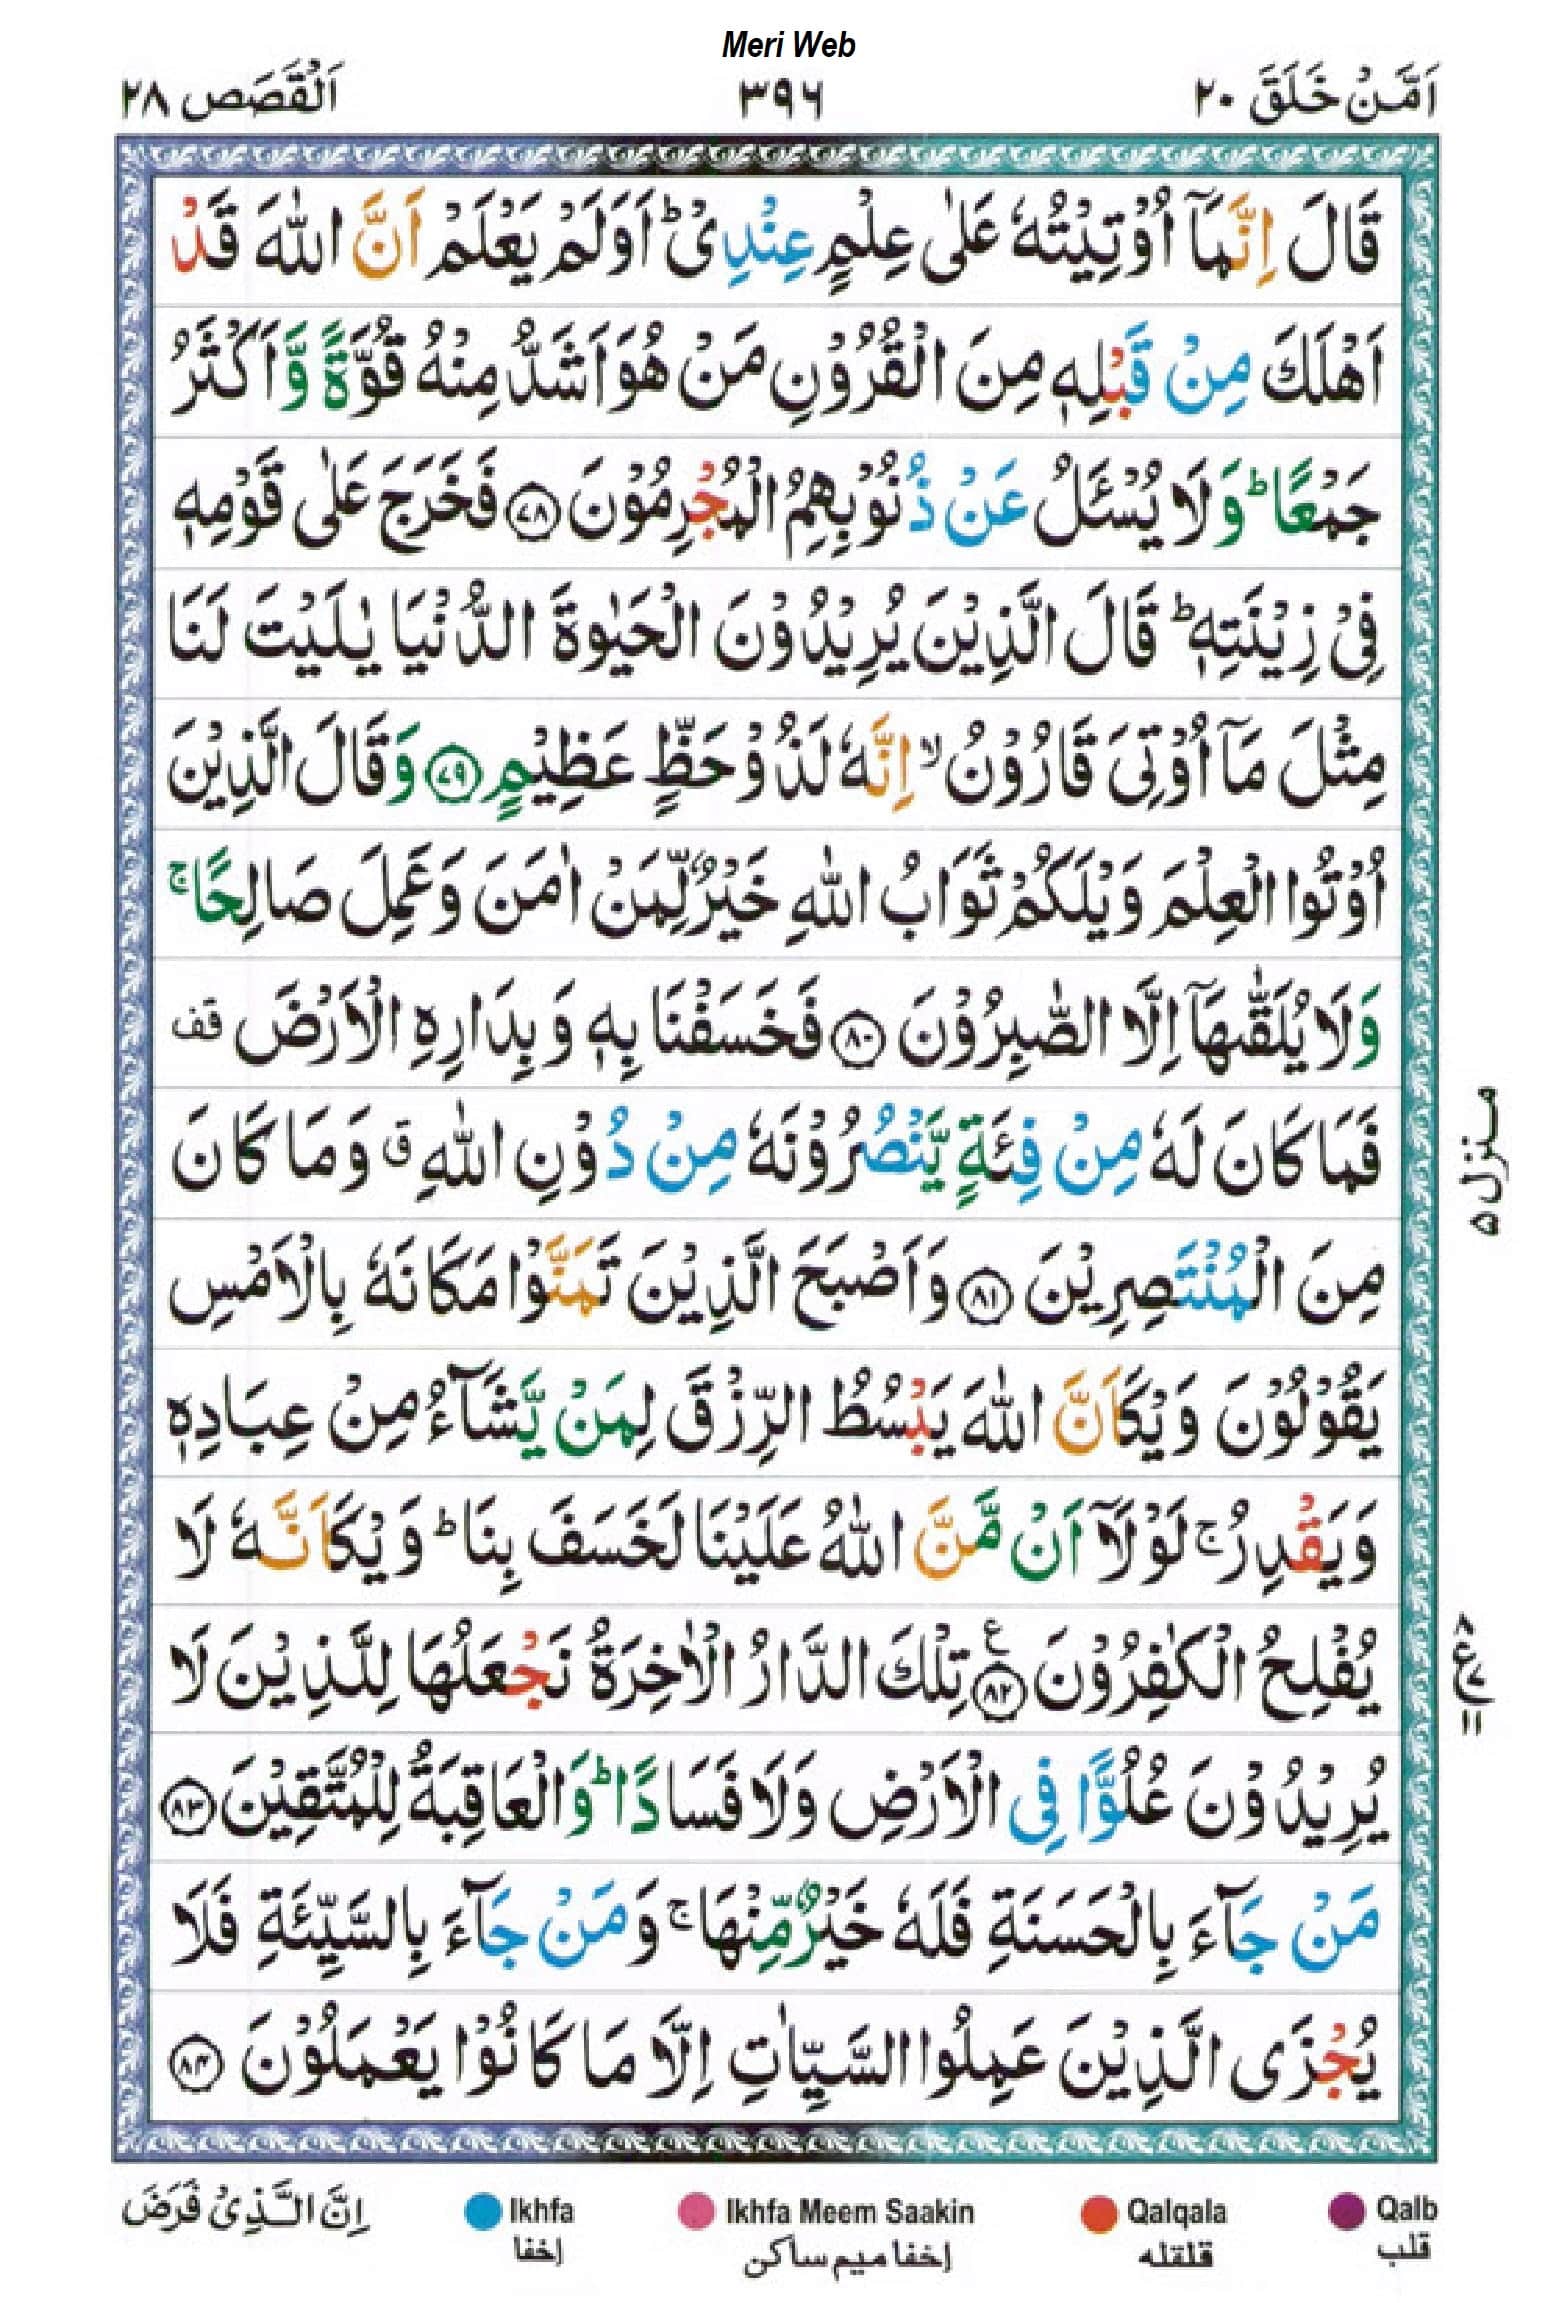 Meri Web
اَمَّنْ خَلَقَ ٢٠
٣٩٦
اَلْقَصَص ٢٨
قَالَ اِنَّمَاۤ اُوْتِيْتُهٗ عَلٰى عِلْمٍ عِنْدِىْ ؕ اَوَلَمْ يَعْلَمْ اَنَّ اللّٰهَ قَدْ
اَهْلَكَ مِنْ قَبْلِهٖ مِنَ الْقُرُوْنِ مَنْ هُوَ اَشَدُّ مِنْهُ قُوَّةً وَّ اَكْثَرُ
جَمْعًا ؕ وَ لَا يُسْئَلُ عَنْ ذُنُوْبِهِمُ الْمُجْرِمُوْنَ ﴿٧٨﴾ فَخَرَجَ عَلٰى قَوْمِهٖ
فِىْ زِيْنَتِهٖ ؕ قَالَ الَّذِيْنَ يُرِيْدُوْنَ الْحَيٰوةَ الدُّنْيَا يٰلَيْتَ لَنَا
مِثْلَ مَاۤ اُوْتِىَ قَارُوْنُ ۙ اِنَّهٗ لَذُوْ حَظٍّ عَظِيْمٍ ﴿٧٩﴾ وَ قَالَ الَّذِيْنَ
اُوْتُوا الْعِلْمَ وَيْلَكُمْ ثَوَابُ اللّٰهِ خَيْرٌ لِّمَنْ اٰمَنَ وَ عَمِلَ صَالِحًا ۚ
وَ لَا يُلَقّٰىهَاۤ اِلَّا الصّٰبِرُوْنَ ﴿٨٠﴾ فَخَسَفْنَا بِهٖ وَ بِدَارِهِ الْاَرْضَ قف
فَمَا كَانَ لَهٗ مِنْ فِئَةٍ يَّنْصُرُوْنَهٗ مِنْ دُوْنِ اللّٰهِ ق وَ مَا كَانَ
مِنَ الْمُنْتَصِرِيْنَ ﴿٨١﴾ وَ اَصْبَحَ الَّذِيْنَ تَمَنَّوْا مَكَانَهٗ بِالْاَمْسِ
يَقُوْلُوْنَ وَيْكَاَنَّ اللّٰهَ يَبْسُطُ الرِّزْقَ لِمَنْ يَّشَآءُ مِنْ عِبَادِهٖ
وَ يَقْدِرُ ۚ لَوْلَاۤ اَنْ مَّنَّ اللّٰهُ عَلَيْنَا لَخَسَفَ بِنَا ؕ وَيْكَاَنَّهٗ لَا
يُفْلِحُ الْكٰفِرُوْنَ ﴿٨٢﴾ ع تِلْكَ الدَّارُ الْاٰخِرَةُ نَجْعَلُهَا لِلَّذِيْنَ لَا
يُرِيْدُوْنَ عُلُوًّا فِى الْاَرْضِ وَ لَا فَسَادًا ؕ وَ الْعَاقِبَةُ لِلْمُتَّقِيْنَ ﴿٨٣﴾
مَنْ جَآءَ بِالْحَسَنَةِ فَلَهٗ خَيْرٌ مِّنْهَا ۚ وَ مَنْ جَآءَ بِالسَّيِّئَةِ فَلَا
يُجْزَى الَّذِيْنَ عَمِلُوا السَّيِّاٰتِ اِلَّا مَا كَانُوْا يَعْمَلُوْنَ ﴿٨٤﴾
منزل ٥
٨ ع ٧ ١١
Qalb
قلب
Qalqala
قلقله
Ikhfa Meem Saakin
إخفا ميم ساكن
Ikhfa
إخفا
اِنَّ الَّذِىْ فَرَضَ